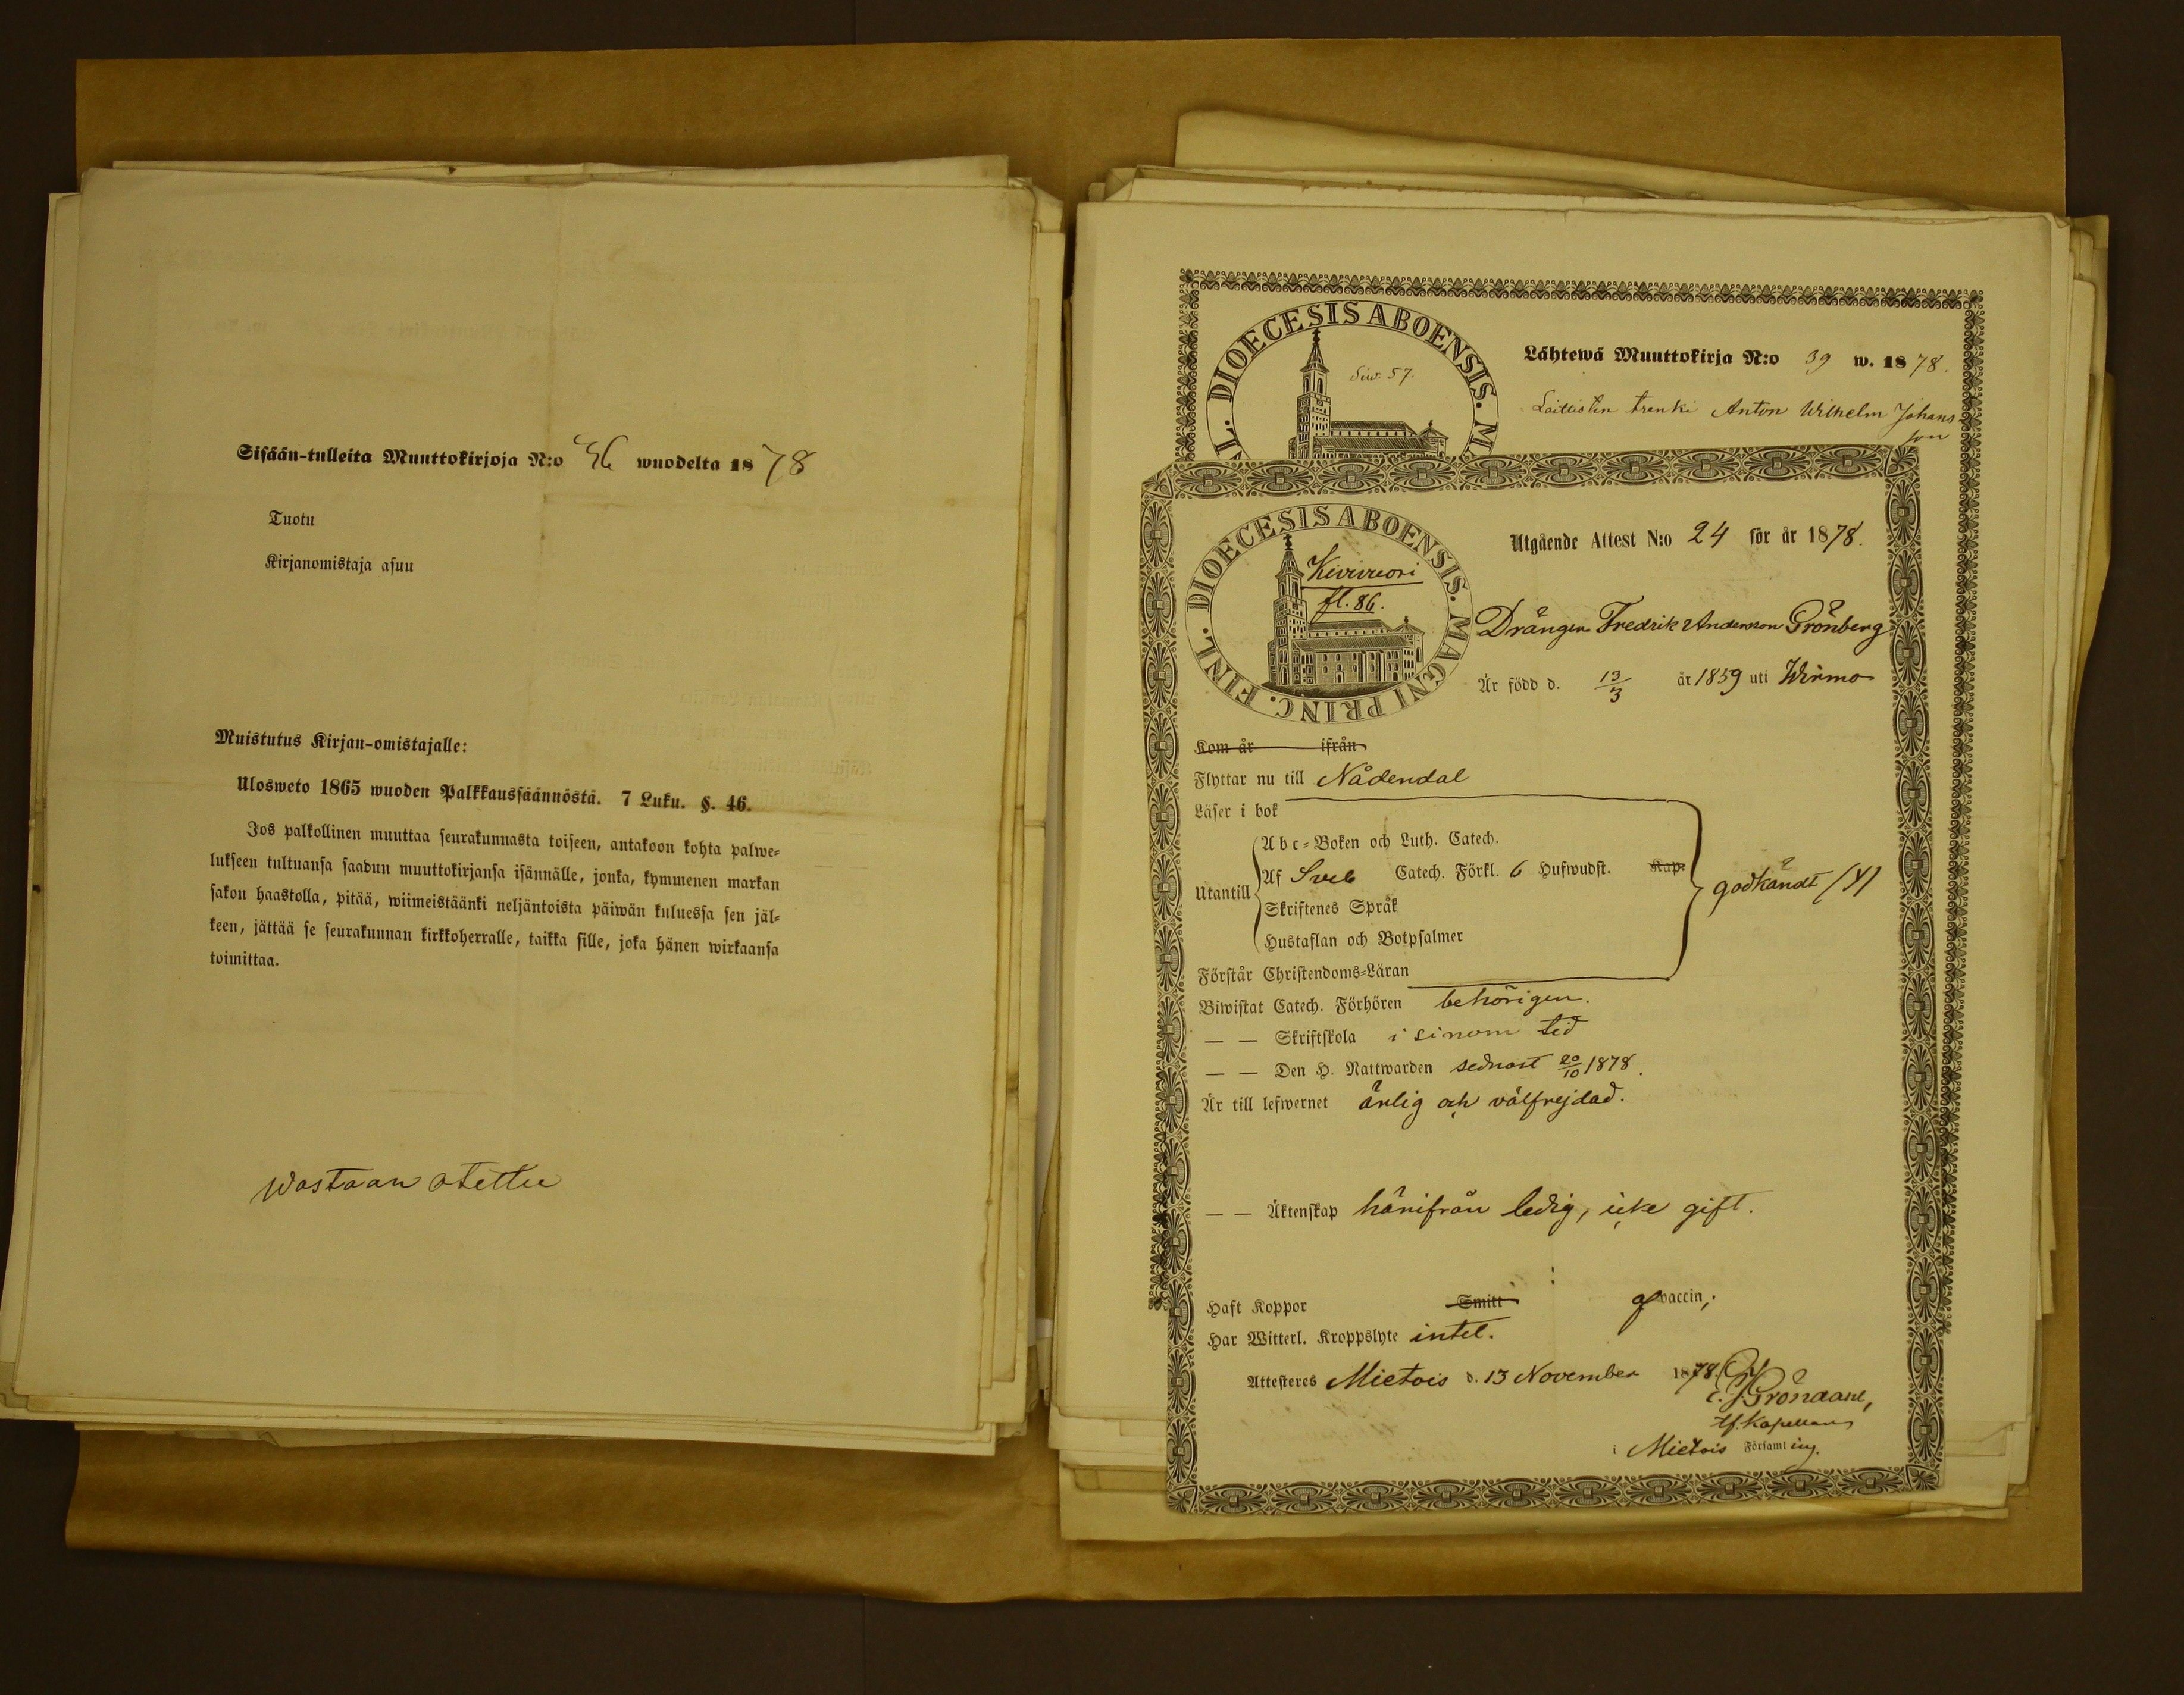 Sisään-tulleita Muuttokirjoja N:o 36 wuodelta 1878
Tuotu
Kirjanomistaja asuu
Muistutus Kirjan-omistajalle:
Ulosweto 1865 wuoden Palkkaussäännöstä. 7 Luku. §. 46.
Jos palkollinen muuttaa seurakunnasta toiseen, antakoon kohta palwe-
lukseen tultuansa saadun muuttokirjansa isännälle, jonka, kymmenen markan
sakon haastolla, pitää, wiimeistäänki neljäntoista päiwän kuluessa sen jäl-
keen, jättää se seurakunnan kirkkoherralle, taikka sille, joka hänen wirkaansa
toimittaa.
Wastaan otettu
DIOECESIS ABOENSIS. M
Siw. 57.
Lähtewä Muuttokirja N:o 39 w. 1878.
trenki Anton Wilhelm Johans
son
DIOECESIS ABOENSIS. MAGNI PRINC. FINL.
Kivivuori
fl. 86.
Utgående Attest N:o 24 för år 1878.
Drängen Fredrik Andersson Grönberg
Är född d. 13/3 år 1859 uti Wirmo
Kom år ifrån
Flyttar nu till Nådendal
Läser i bok
Utantill
Abc-Boken och Luth. Catech.
Af Sveb Catech. Förkl. 6 Hufwudst. Kap.
Skriftenes Språk
Hustaflan och Botpsalmer
godkändt /y/
Förstår Christendoms-Läran
Biwistat Catech. Förhören behörigen.
— — Skriftskola i sinom tid
— — Den H. Nattwarden sednast 20/10 1878.
Är till lefwernet ärlig och välfrejdad.
— — Äktenskap härifrån ledig, icke gift.
Haft Koppor Smitt af vaccin;
Har Witterl. Kroppslyte intet.
Attesteres Mietois d. 13 November 1878.
Gröndahl,
tf. Kapellan
i Mietois Församling.